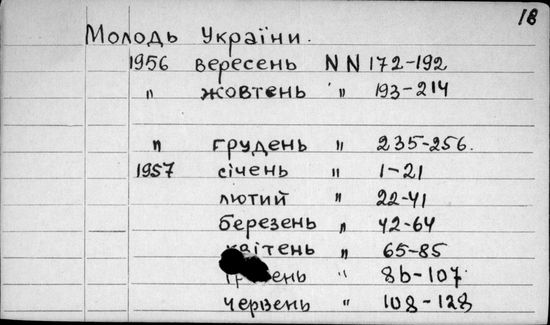 18
Молодь України.
1956 вересень NN 172-192
" жовтень " 193-214
" грудень " 235-256.
1957 січень " 1-21
лютий " 22-41
березень " 42-64
квітень " 65-85
" 86-107
червень " 108-128